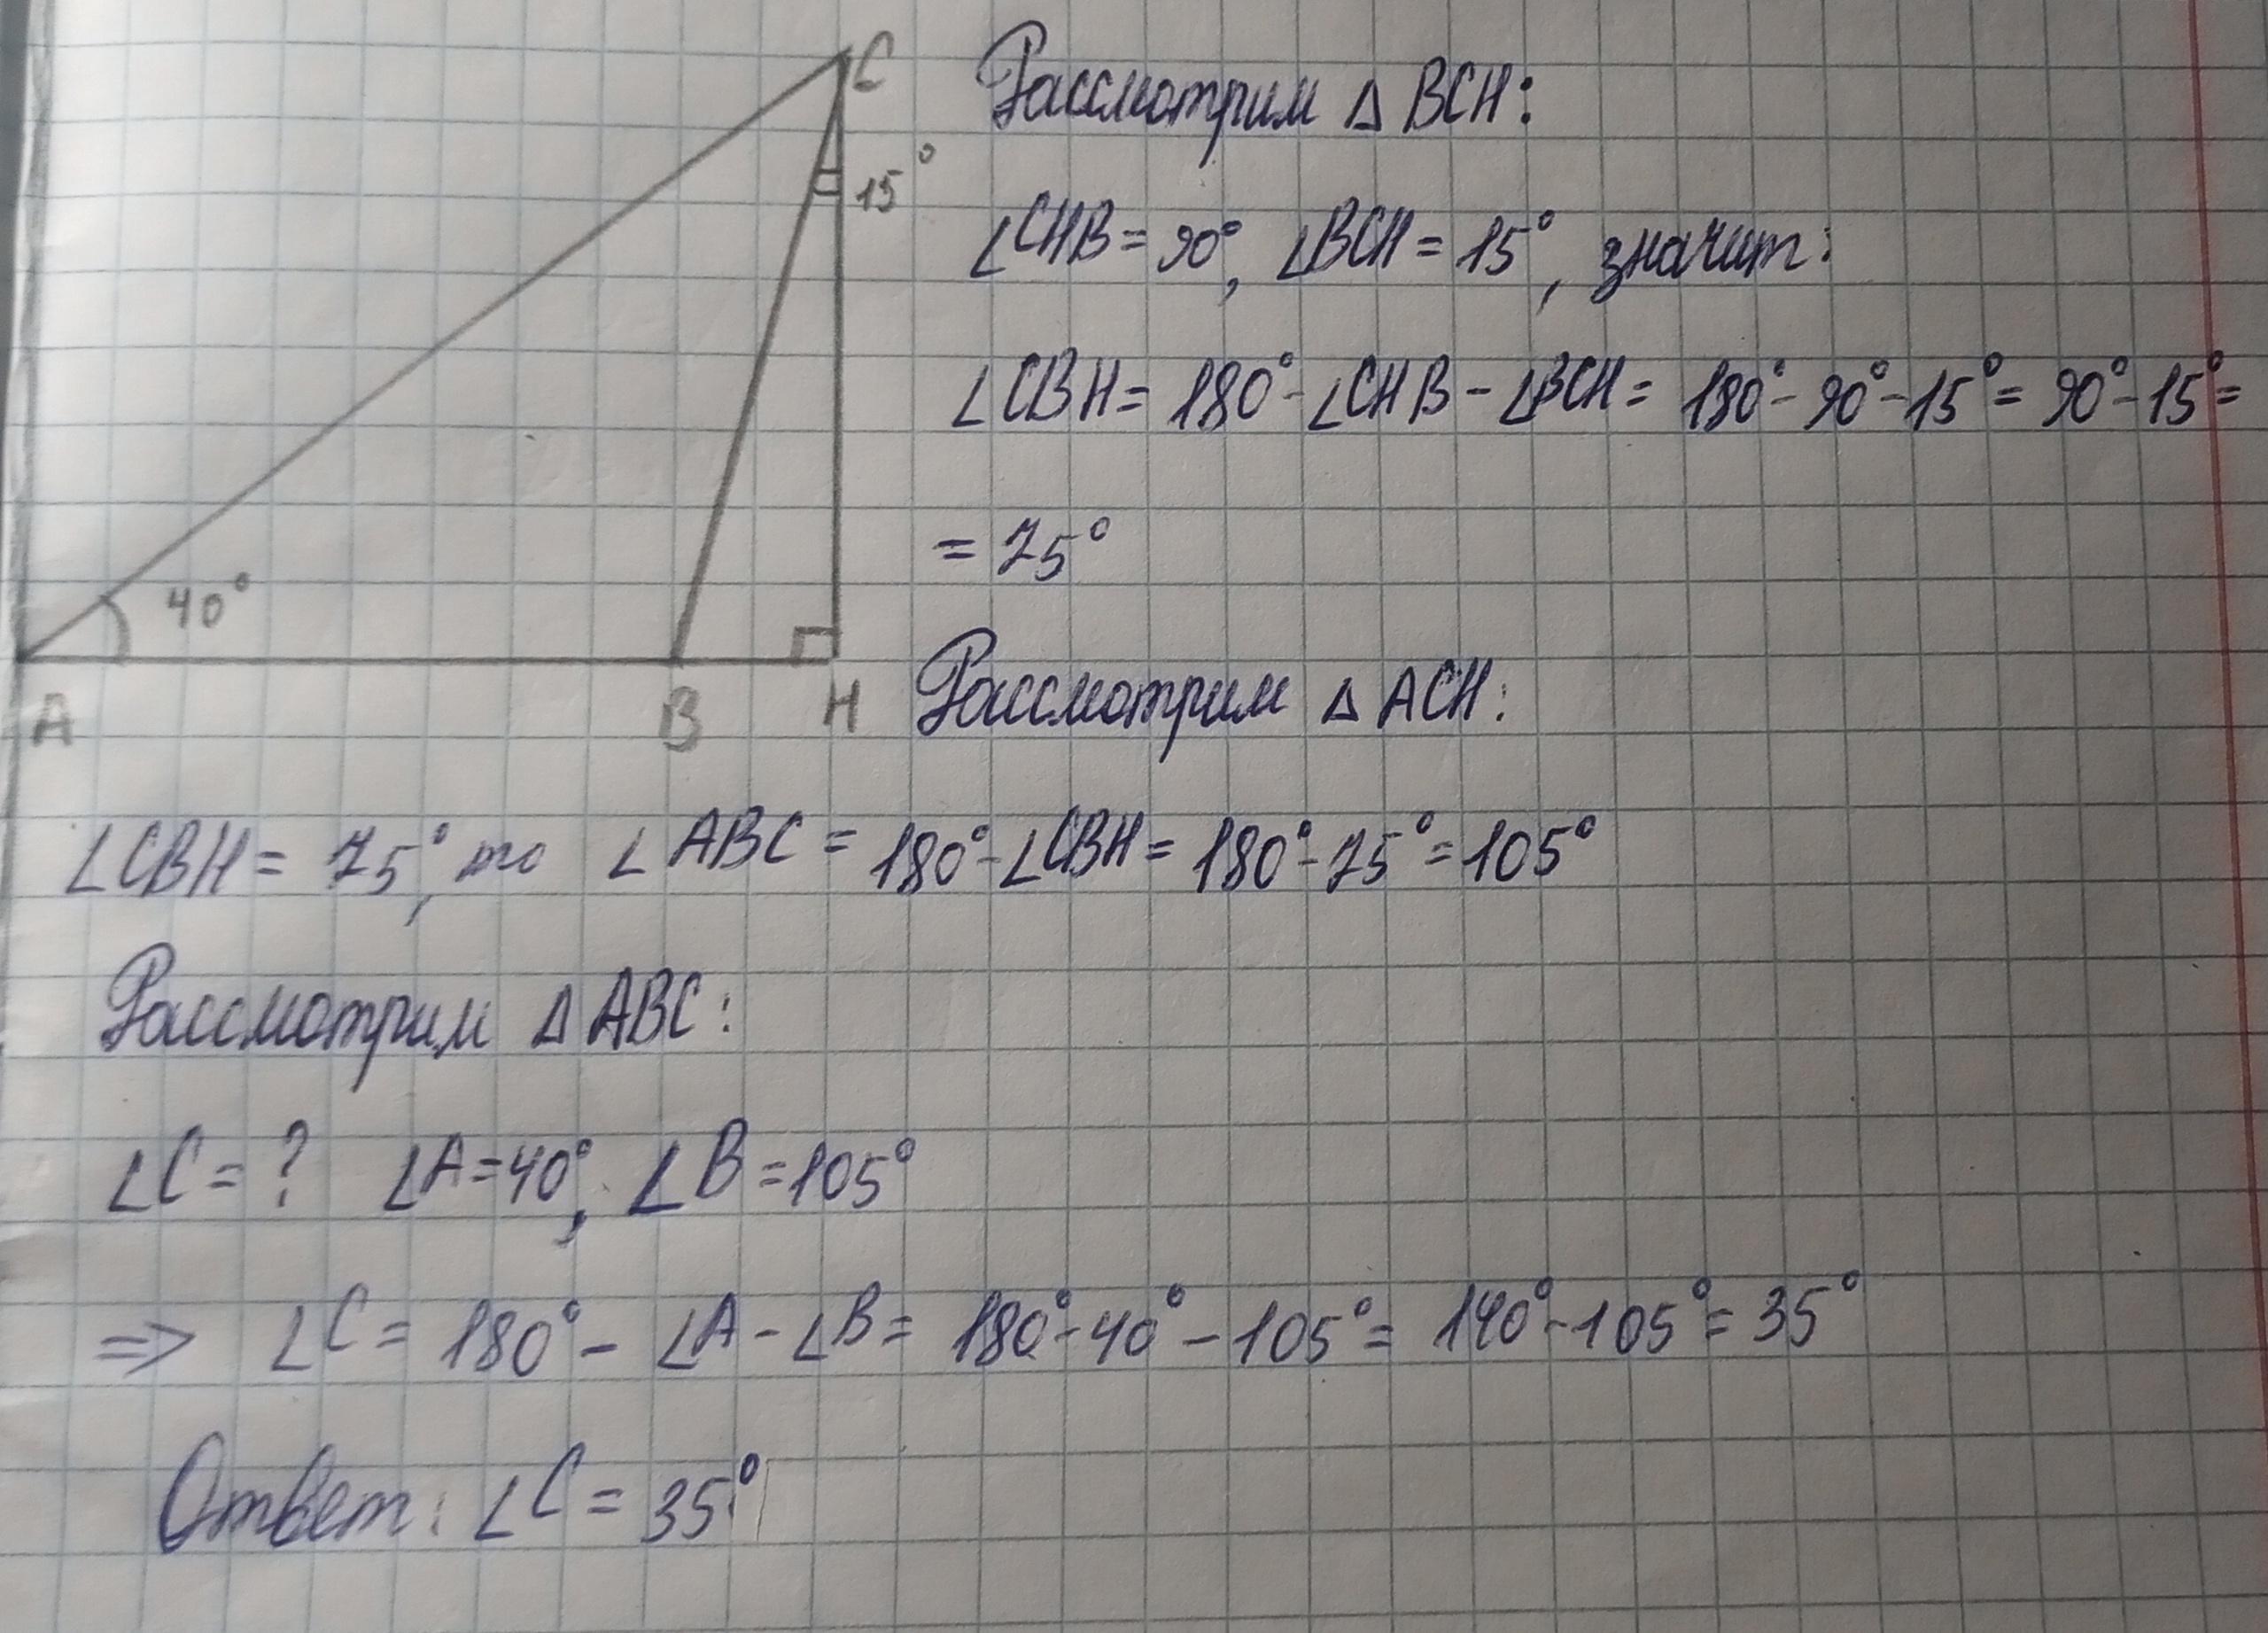 C
15°
40°
A
B
H
Рассмотрим Δ BCH:
∠CHB = 90°, ∠BCH = 15°, значит:
∠CBH = 180° - ∠CHB - ∠BCH = 180° - 90° - 15° = 90° - 15° =
= 75°
Рассмотрим Δ ACH:
∠CBH = 75°, то ∠ABC = 180° - ∠CBH = 180° - 75° = 105°
Рассмотрим Δ ABC:
∠C = ? ∠A = 40°, ∠B = 105°
=> ∠C = 180° - ∠A - ∠B = 180° - 40° - 105° = 140° - 105° = 35°
Ответ: ∠C = 35°